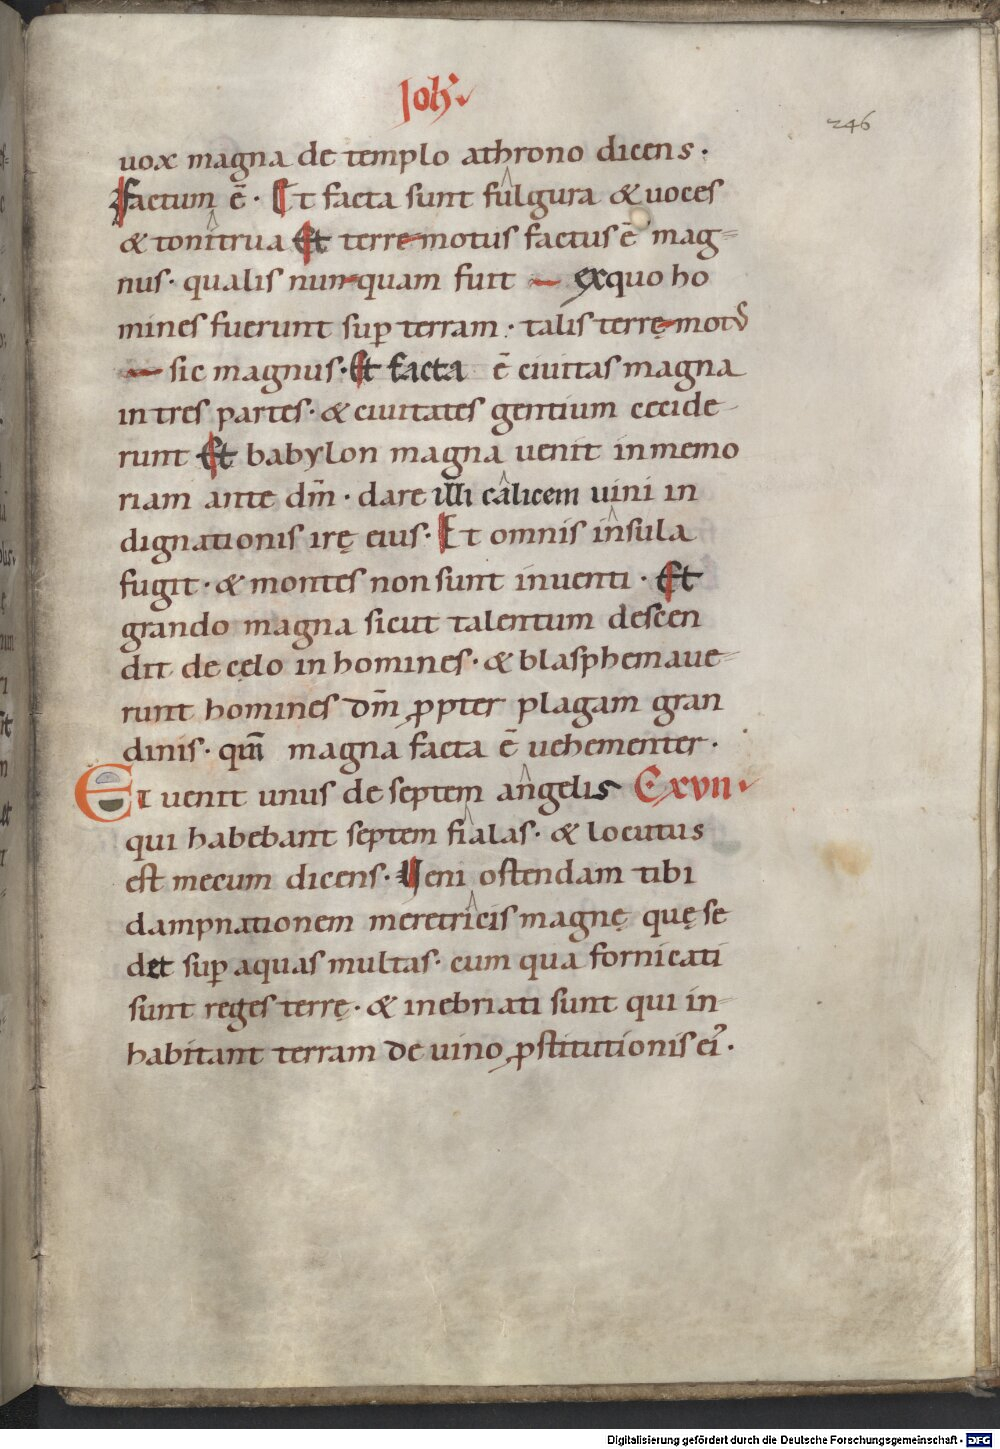 Joh̄.
246
uox magna de templo athrono dicens.
Factum ē. Et facta sunt fulgura & uoces
& tonitrua Et terremotus factus ē mag=
nus. qualis nunquam fuit exquo ho
mines fuerunt sup̱ terram. talis terrę motꝰ
sic magnus. Et facta ē ciuitas magna
in tres partes. & ciuitates gentium cecide-
runt Et babylon magna uenit in memo
riam ante dm̄. dare illi calicem uini in
dignationis irę eius. Et omnis insula
fugit. & montes non sunt inuenti. Et
grando magna sicut talentum descen
dit de cęlo in homines. & blasphemaue=
runt homines dm̄ ꝓpter plagam gran
dinis. qm̄ magna facta ē uehementer.
Et uenit unus de septem angelis C xvii.
qui habebant septem fialas. & locutus
est mecum dicens. Veni ostendam tibi
dampnationem meretricis magnę quę se
det sup̱ aquas multas. cum qua fornicati
sunt reges terrę. & inebriati sunt qui in=
habitant terram de uino ꝓstitutionis eiꝰ.
Digitalisierung gefördert durch die Deutsche Forschungsgemeinschaft - DFG